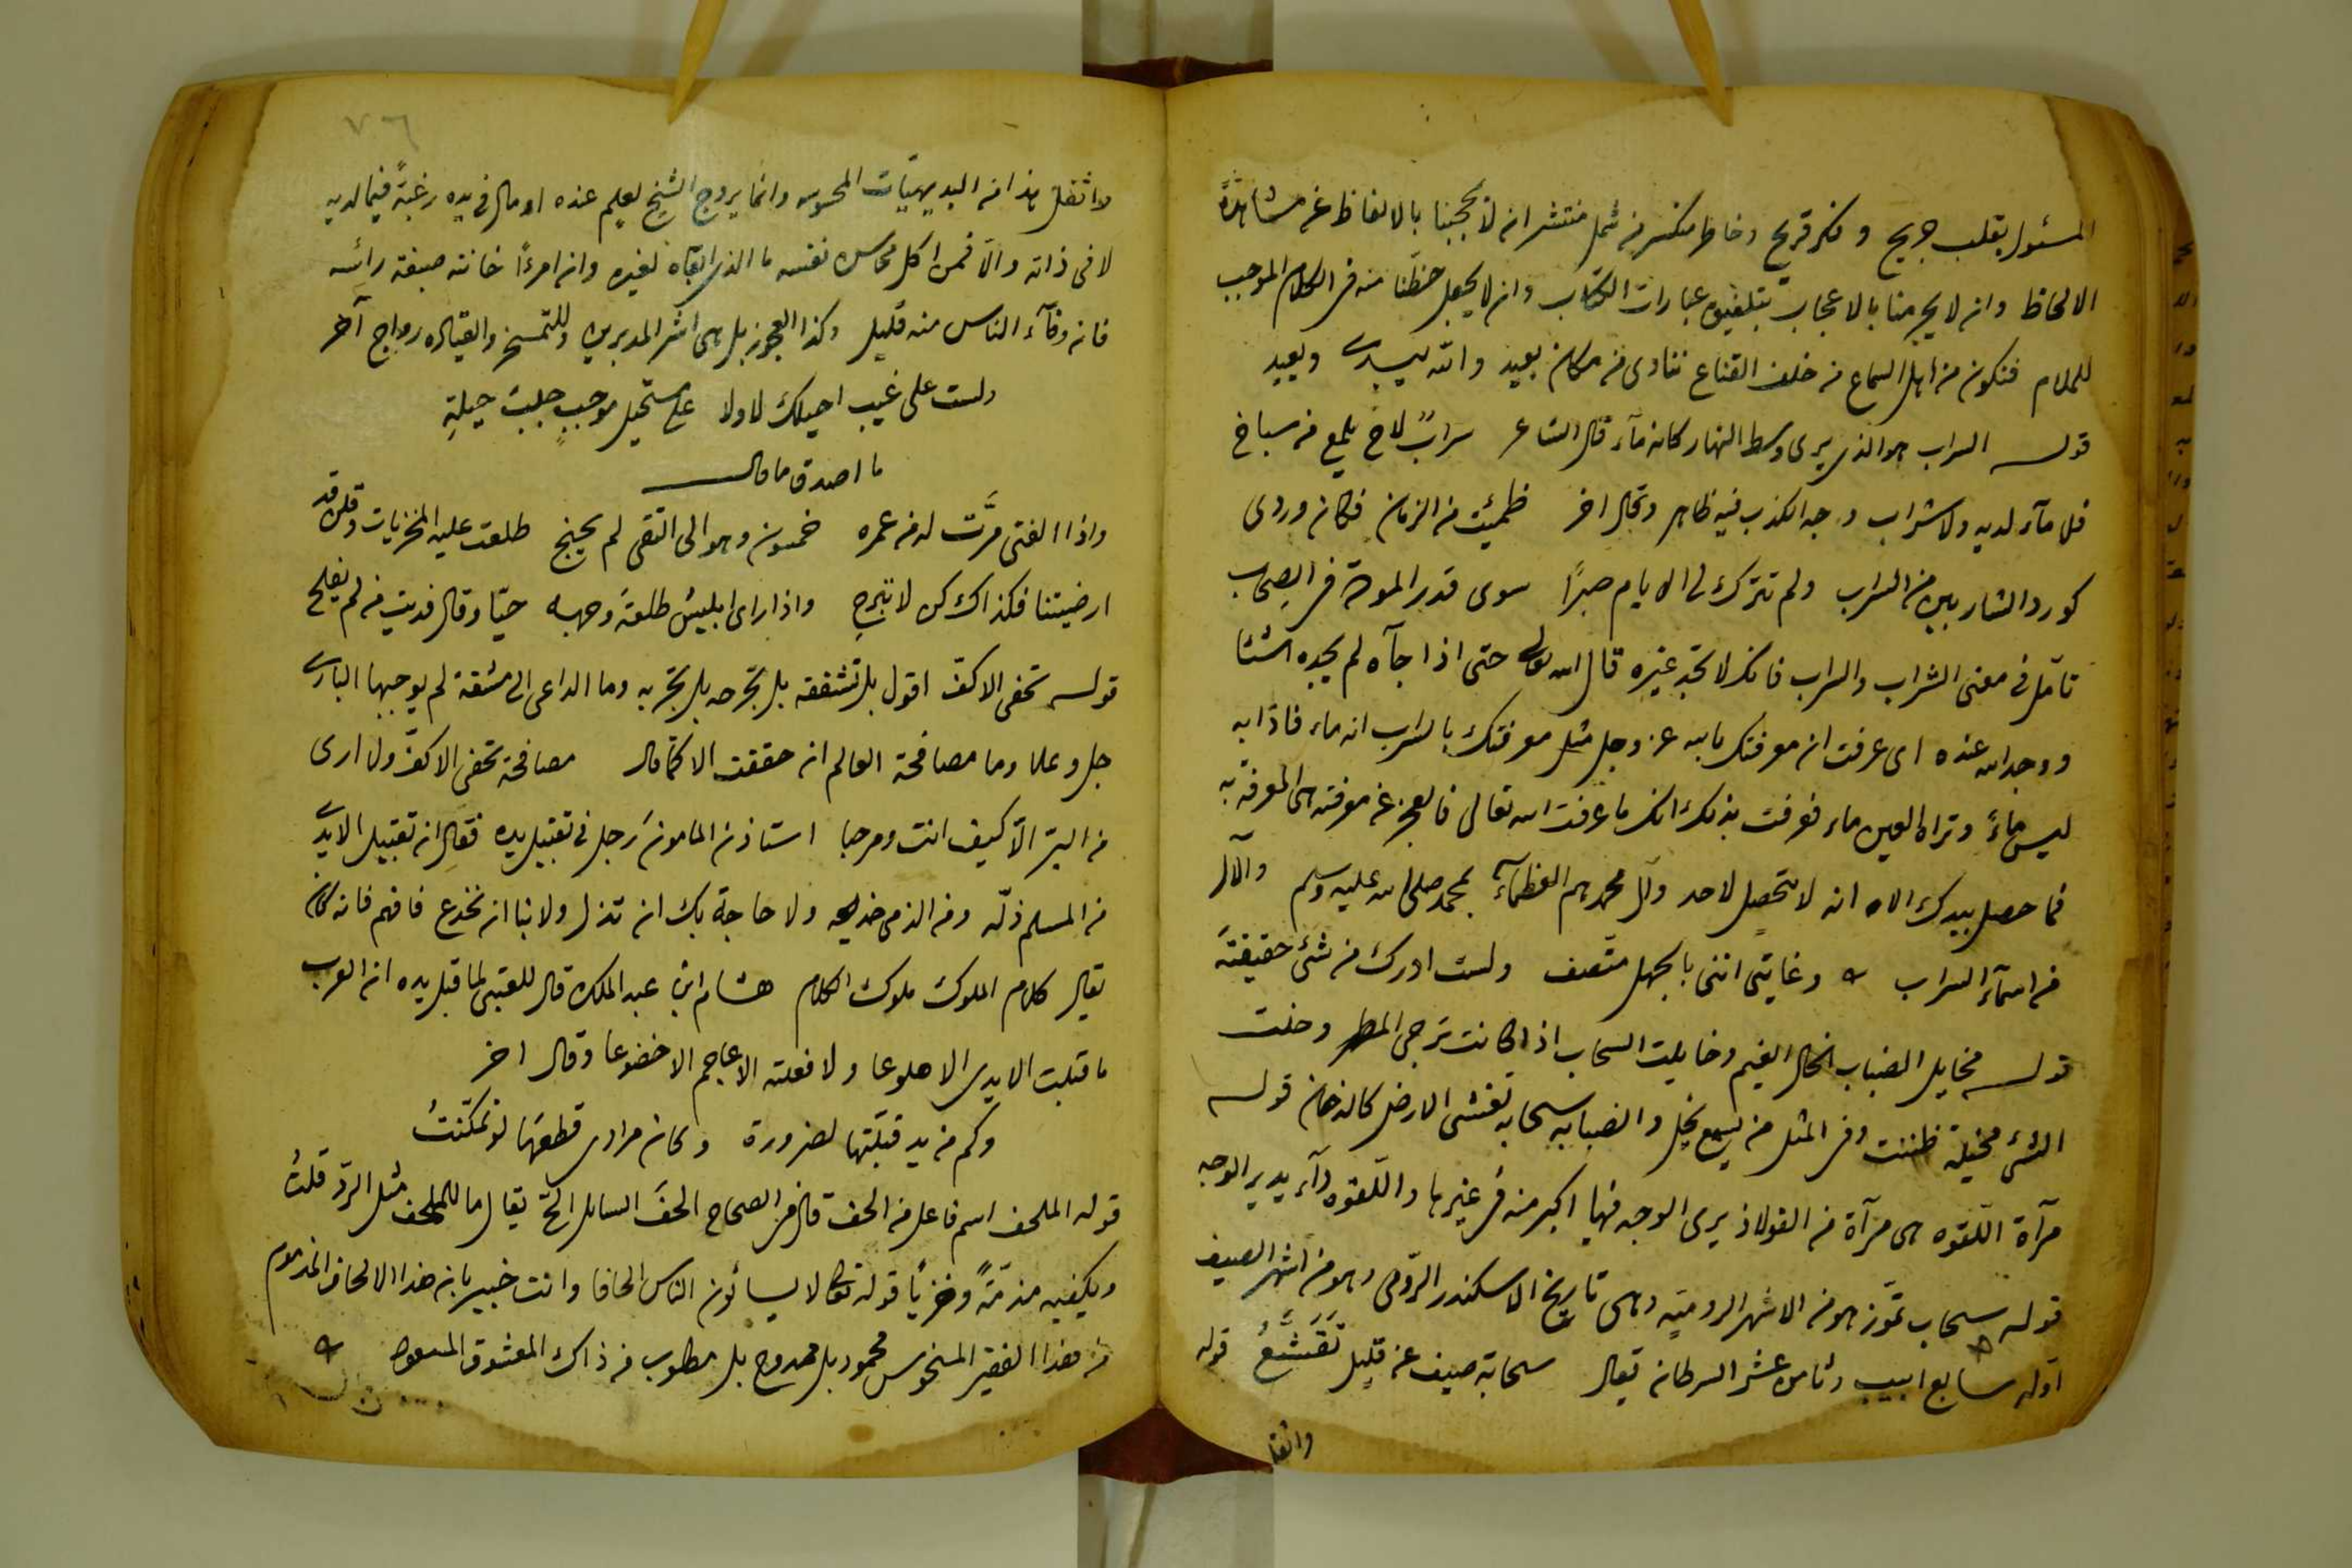 المسئول بقلب جريح وفكر قريح وخاطر منكسر من شمل منتشر ان لا يحجبنا بالالفاظ عن مشاهدة
الالحاظ وان لا يحرمنا بالاعجاب بتلفيق عبارات الكتاب وان لا يجعل حظنا منه فى الكلام الموجب
للملام فنكون من اهل السماع من خلف القناع ننادى من مكان بعيد والله يبدى ويعيد
قوله السراب هو الذى يرى وسط النهار كانه مآء قال الشاعر سراب لاح يلمع من سباخ
فلا مآء لديه ولا شراب وجه الكذب فيه ظاهر وقال اخر ظمئت من الزمان فكان وردى
كورد الشاربين من السراب ولم تترك لى الايام صبرًا سوى قدر المودة فى الصحاب
تأمل فى معنى الشراب والسراب فانك لا تجد غيره قال الله تعالى حتى اذا جآه لم يجده شيئا
ووجد الله عنده اى عرفت ان معرفتك بالله عز وجل مثل معرفتك بالسراب انه ماء فاذا به
ليس ماءً وتراه العين ماء فعرفت بذلك انك ما عرفت الله تعالى فالعجز عن معرفته هى المعرفة به
فما حصل بيدك الا انه لا يتحصل لاحد وآل محمد هم العظمآء بمحمد صلى الله عليه وسلم والآل
من اسمآء السراب وغايتى اننى بالجهل متصف ولست ادرك من شئ حقيقته
قوله مخايل الضباب الخال الغيم وخايلت السحاب اذا كانت ترجى المطر وخلت
الشئ مخيلة ظننت وفى المثل من يسمع يخل والضبابه سحابه تغشى الارض كالدخان قوله
مرآة اللقوه هى مرآة من الفولاذ يرى الوجه فيها اكبر منه فى غيرها واللقوه دآء يدير الوجه
قوله سحاب تموز هو من الاشهر الروميه وهى تاريخ الاسكندر الرومى وهو من اشهر الصيف
اوله سابع ابيب وثامن عشر السرطان يقال سحابة صيف عن قليل تَقَشَّعُ قوله
واثقل
٧٦
واثقل هذا من البديهيّات المحسوسه وانما يروج الشيخ لعلم عنده او مال فى يده رغبةً فيما لديه
لا فى ذاته والّا فمن اكل محاسن نفسه ما الذى ابقاه لغيره وان امرءًا خانته صبغة رائسه
فان وفآء الناس منه قليل وكذا العجوز بل هى اشر المدبرين وللتمسخر والقياده رواج آخر
ولست على غيب احيلك لا ولا على مستحيل موجب جلب حيلةِ
ما اصدق ما قال
واذا الفتى مرَّت له من عمره خمسون وهو الى التقى لم يجنح طلعت عليه المخزيات وقلن قد
ارضيتنا فكذاك كن لا تبرح واذا راى ابليسُ طلعةَ وجهه حيّا وقال فديت من لم يفلح
قوله تحفى الاكفّ اقول بل تشققه بل تجرحه بل تجربه وما الداعى الى مشقة لم يوجبها البارى
جل وعلا وما مصافحة العالم ان حققت الا كما قال مصافحة تحفى الاكفّ ولا ارى
من البرّ الّا كيف انت ومرحبا استاذن المامونَ رجل فى تقبيل يده فقال ان تقبيل الايدى
من المسلم ذلّه ومن الذمى خديعه ولا حاجة بك ان تذل ولا بنا ان نخدع فافهم فانه كان
يقال كلام الملوك ملوك الكلام هشام ابن عبد الملك قال للعتبى لما قبل يده ان العرب
ما قبلت الايدى الا هلوعا ولا فعلته الاعاجم الا خضوعا وقال اخر
وكم من يد قبّلتها لضرورة وكان مرادى قطعها لو تمكّنتُ
قوله الملحف اسم فاعل من الحف قال فى الصحاح الحفَ السايل الحّ يقال ما للملحف مثل الردّ قلت
ويكفيه مذمّةً وخزيًا قوله تعالى لا يسألون الناس الحافا وانت خبير بان هذا الالحاف المذموم
من هذا الفقير المنحوس محمود بل ممدوح بل مطلوب من ذاك المعشوق